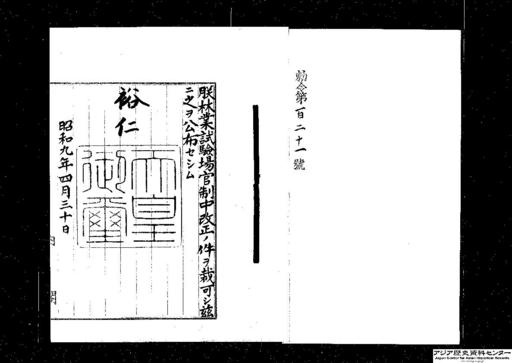 勅令第百二十一號
朕林業試驗場官制中改正ノ件ヲ裁可シ茲
ニ之ヲ公布セシム
裕仁
天皇御璽
昭和九年四月三十日
内閣
アジア歴史資料センター
Japan Center for Asian Historical Records